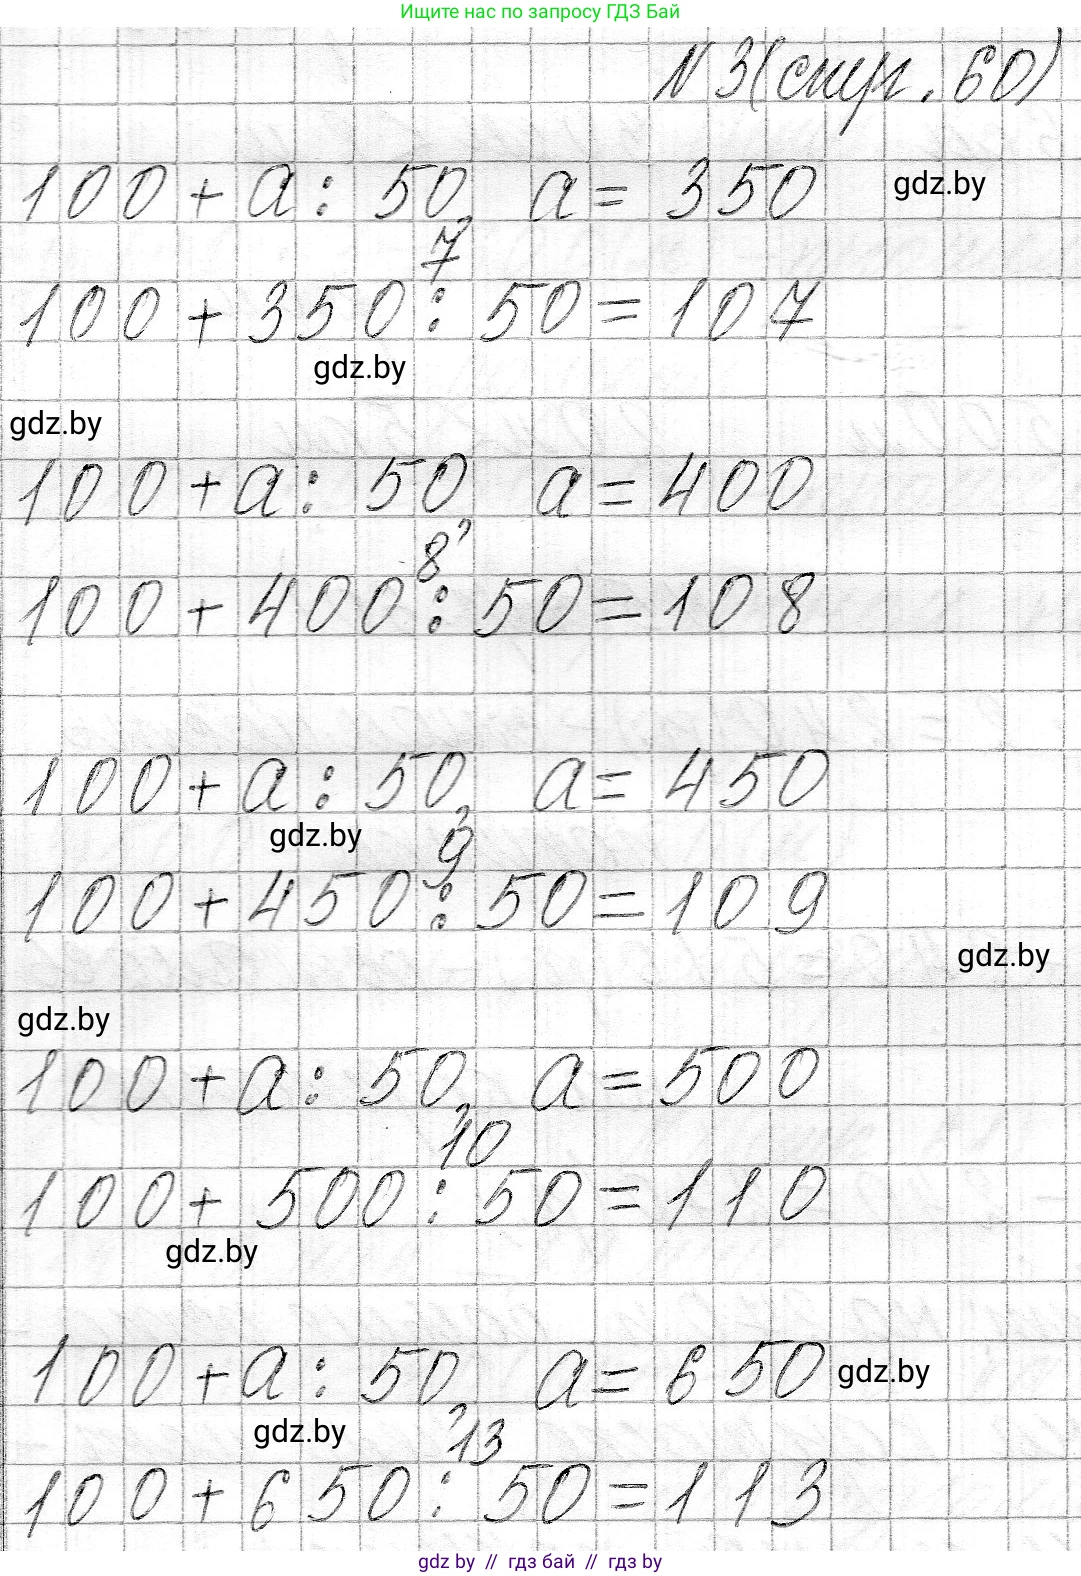 Ищите нас по запросу ГДЗ Бай
N 3 (стр. 60)
100 + a : 50, a = 350
gdz.by
7
100 + 350 : 50 = 107
gdz.by
gdz.by
100 + a : 50, a = 400
8
100 + 400 : 50 = 108
100 + a : 50, a = 450
gdz.by
9
100 + 450 : 50 = 109
gdz.by
gdz.by
100 + a : 50, a = 500
10
100 + 500 : 50 = 110
gdz.by
100 + a : 50, a = 650
gdz.by
gdz.by
13
100 + 650 : 50 = 113
gdz by // гдз бай // гдз by